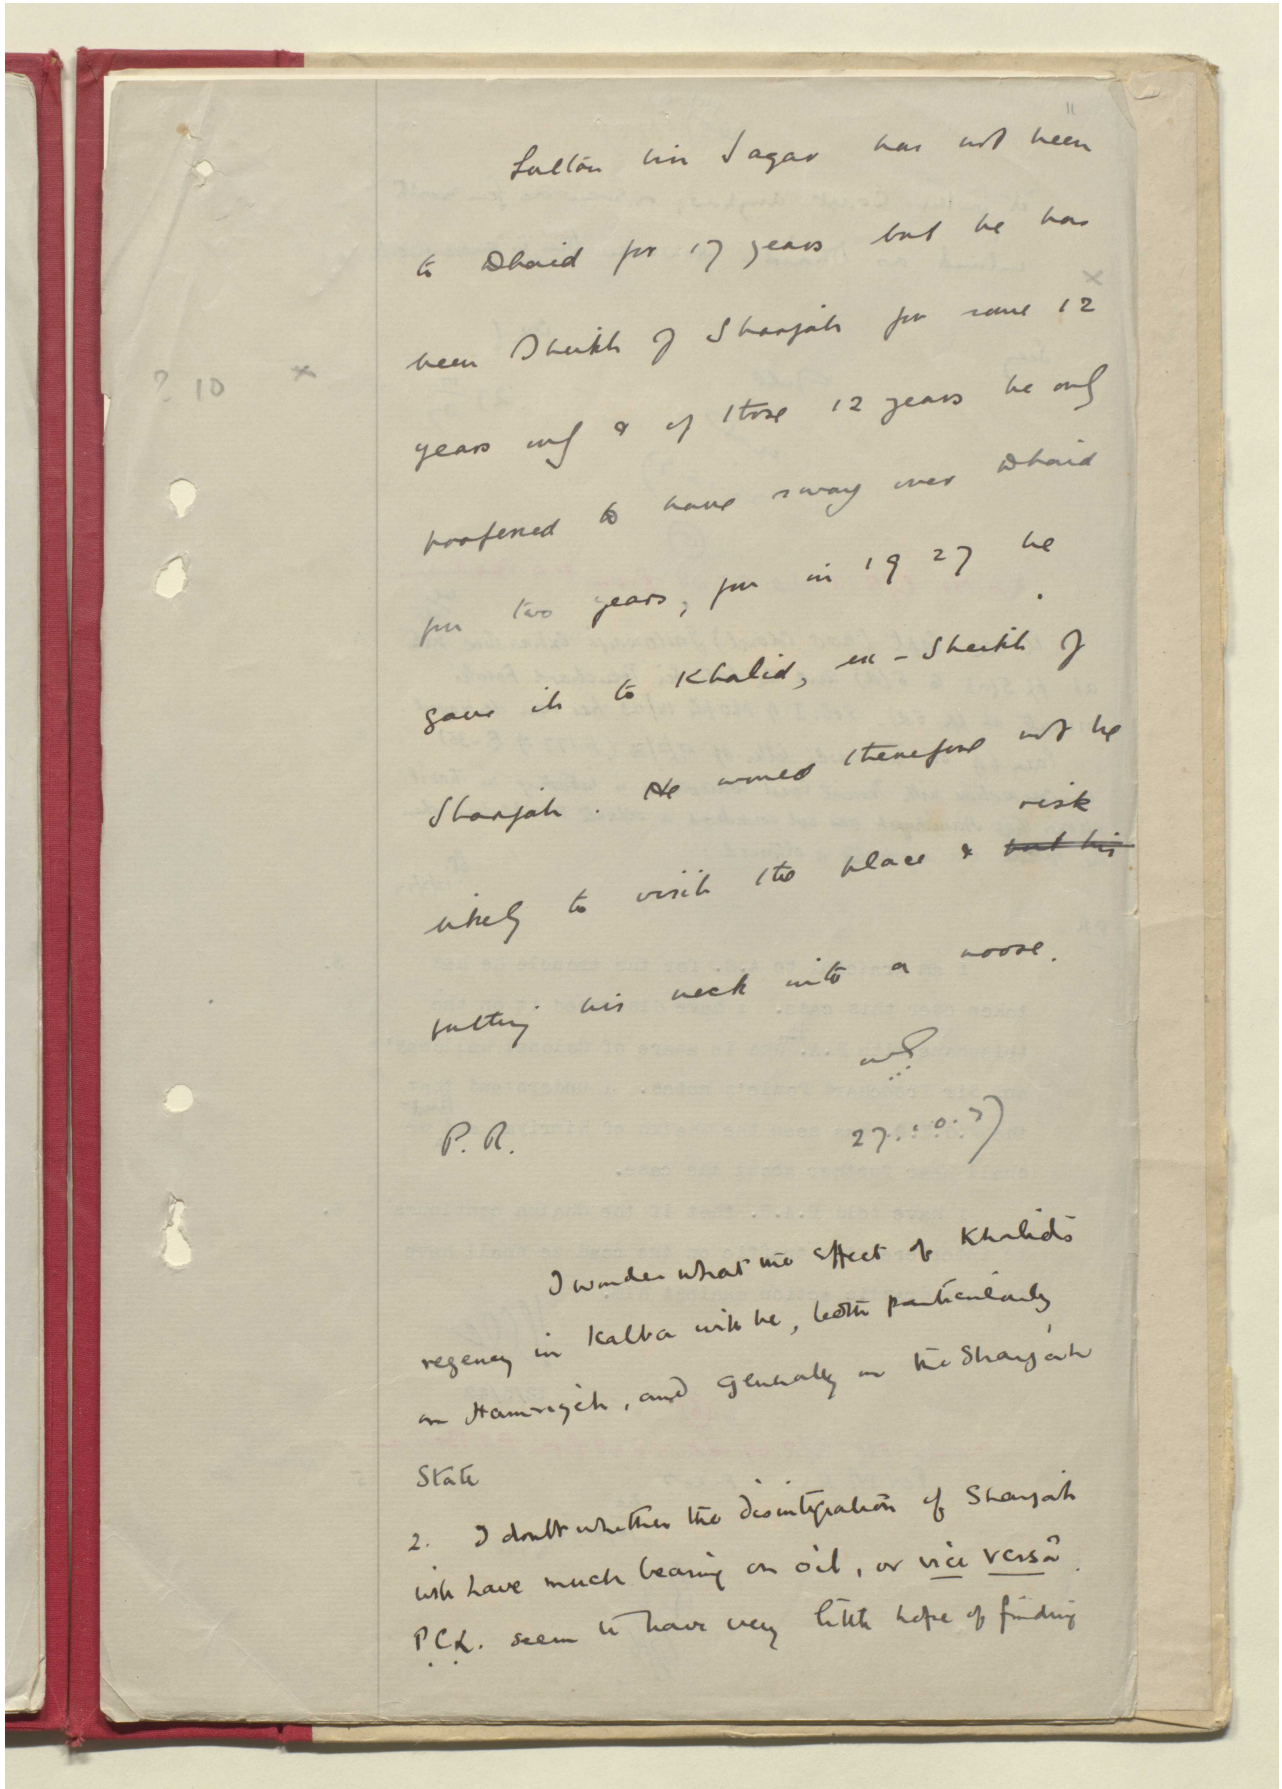 11
Sultan bin Sagar has not been
to Dhaid for 17 years but he has
×
been Sheikh of Sharjah for some 12
? 10 ×
years only & of those 12 years he only
happened to have sway over Dhaid
for two years, for in 1927 he
gave it to Khalid, ex-Sheikh of
Sharjah. He would therefore not be
risk
likely to visit the place & put his
putting his neck into a noose.
27.10.37
P. R.
I wonder what the effect of Khalid's
regency in Kalba will be, both particularly
on Hamriyah, and generally on the Sharjah
State
2. I doubt whether the disintegration of Sharjah
will have much bearing on oil, or vice versâ.
P.C.L. seem to have very little hope of finding